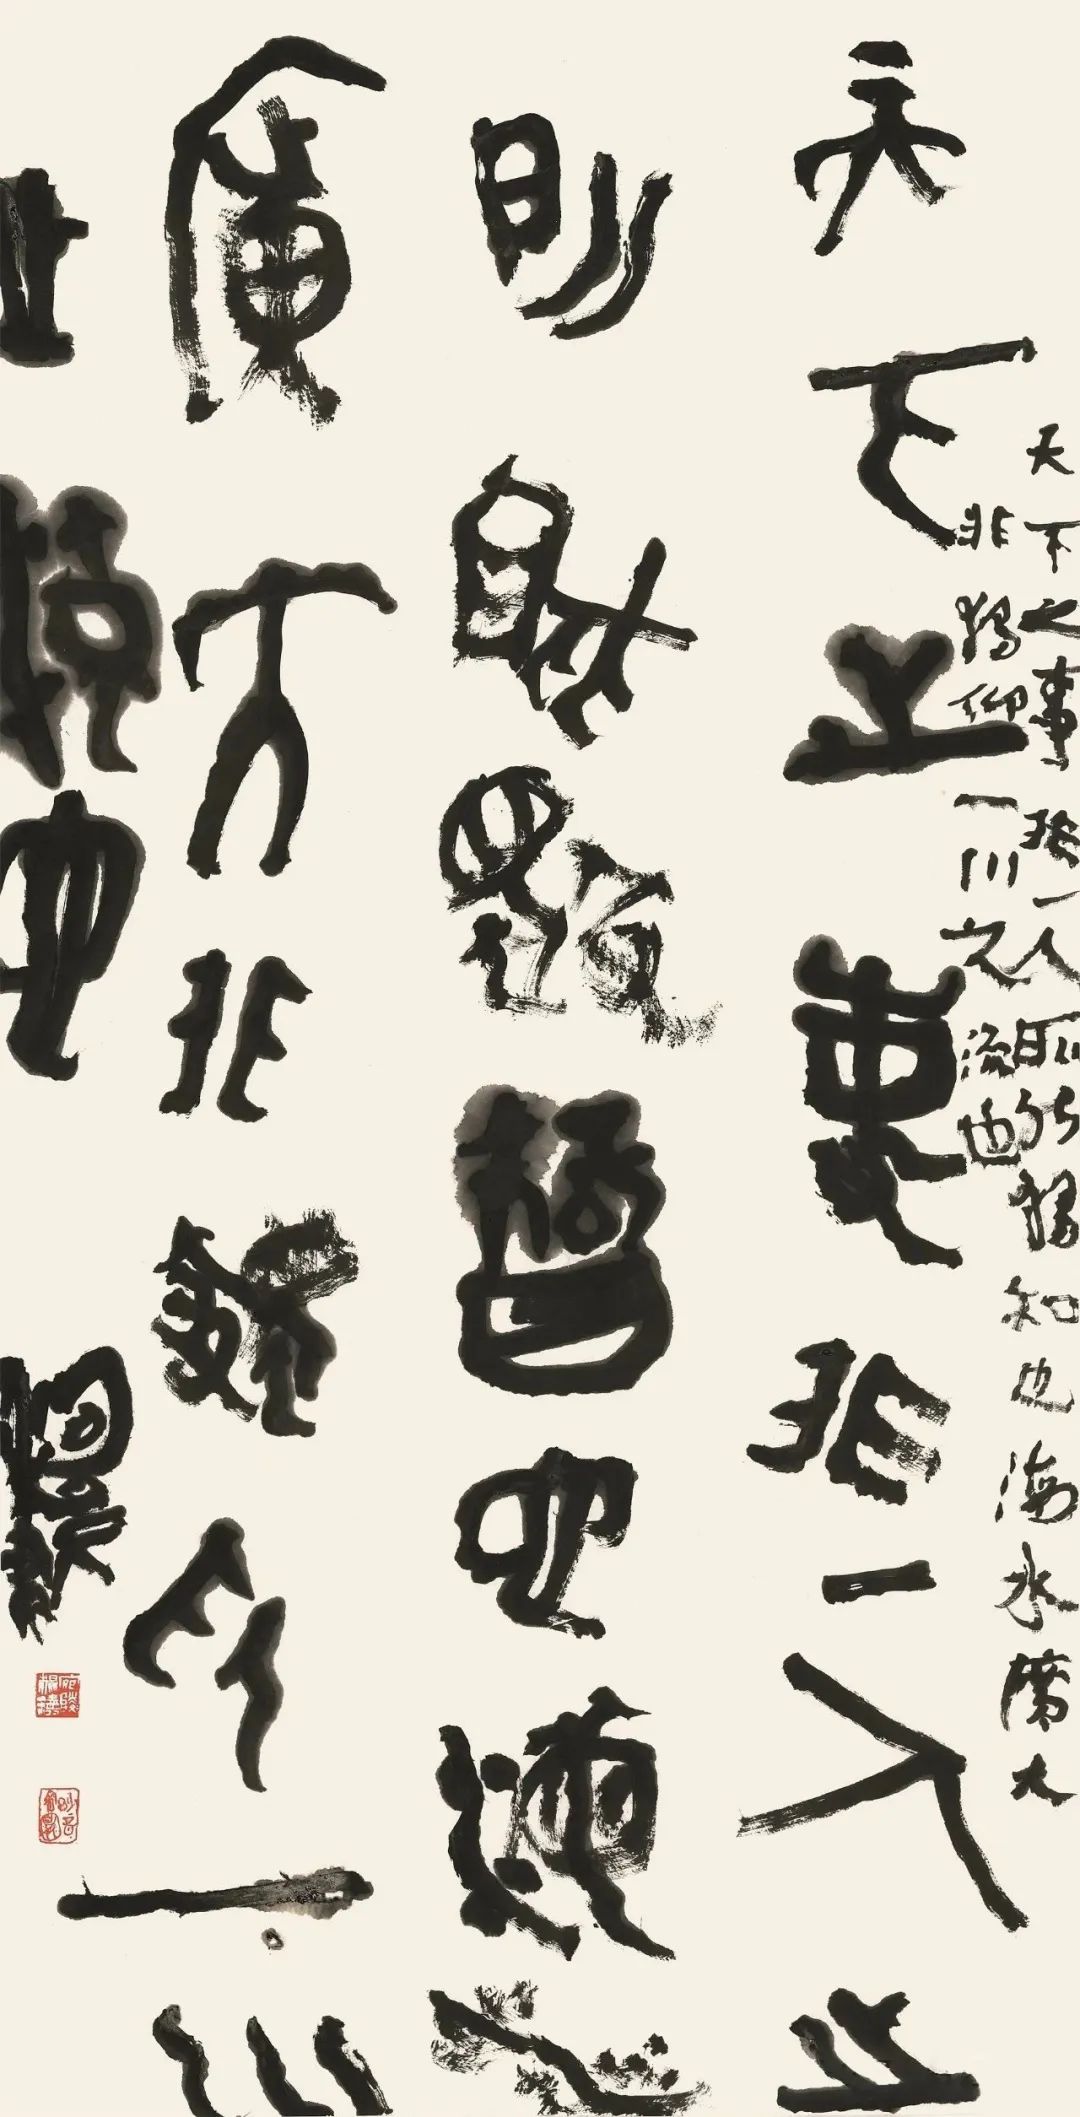 天下之事非一人之
所能獨智也海水
廣大非獨仰一川
之流也
天下之事非一人所能獨知也海水廣大
非獨仰一川之流也